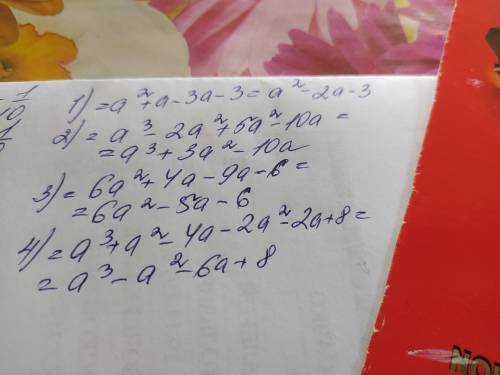 1/10
1) = a² + a - 3a - 3 = a² - 2a - 3
2) = a³ - 2a² + 5a² - 10a =
= a³ + 3a² - 10a
3) = 6a² + 4a - 9a - 6 =
= 6a² - 5a - 6
4) = a³ + a² - 4a - 2a² - 2a + 8 =
= a³ - a² - 6a + 8